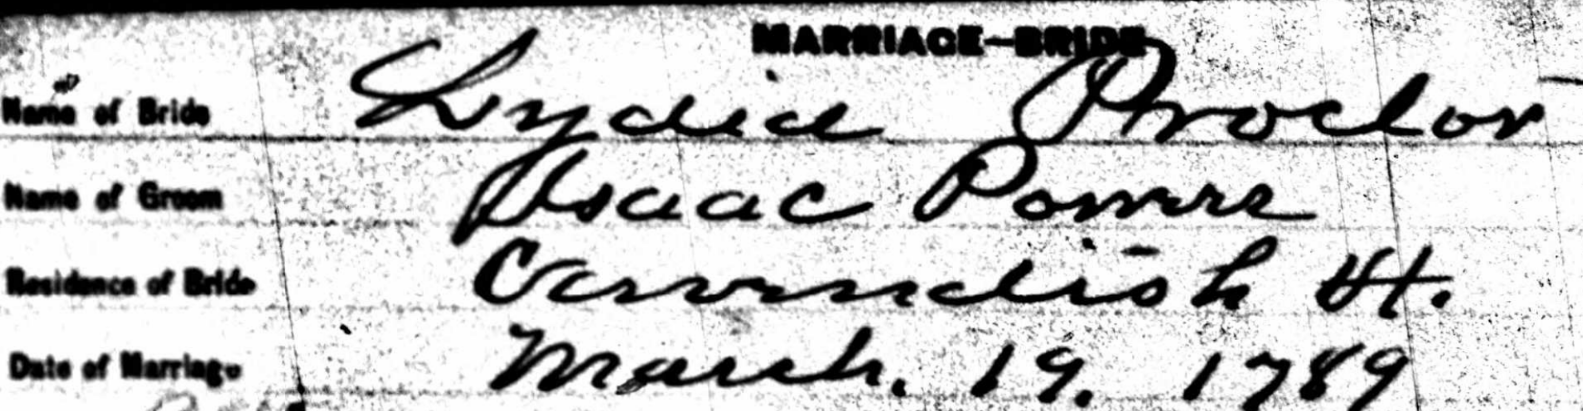 MARRIAGE—BRIDE
Name of Bride Lydia Proctor
Name of Groom Isaac Powers
Residence of Bride Cavendish Vt.
Date of Marriage March. 19. 1789